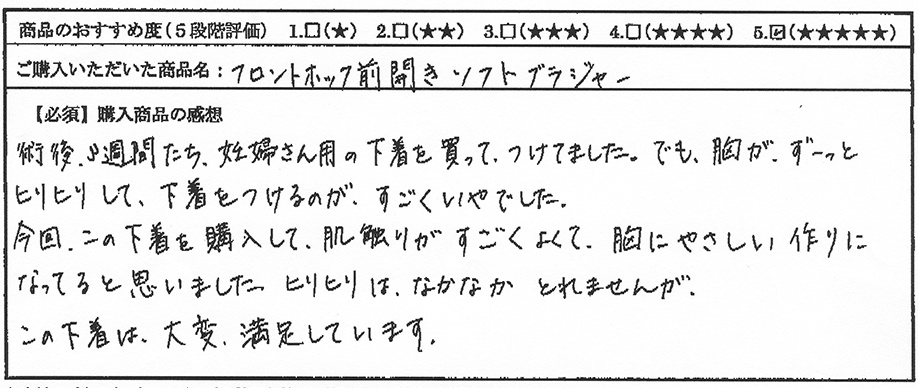 商品のおすすめ度(5段階評価) 1.□(★) 2.□(★★) 3.□(★★★) 4.□(★★★★) 5.☑(★★★★★)
ご購入いただいた商品名：フロントホック前開きソフトブラジャー
【必須】購入商品の感想
術後、3週間たち、妊婦さん用の下着を買って、つけてました。でも、胸が、ずーっと
ヒリヒリして、下着をつけるのが、すごくいやでした。
今回、この下着を購入して、肌触りがすごくよくて、胸にやさしい作りに
なってると思いました。ヒリヒリは、なかなかとれませんが、
この下着は、大変、満足しています。